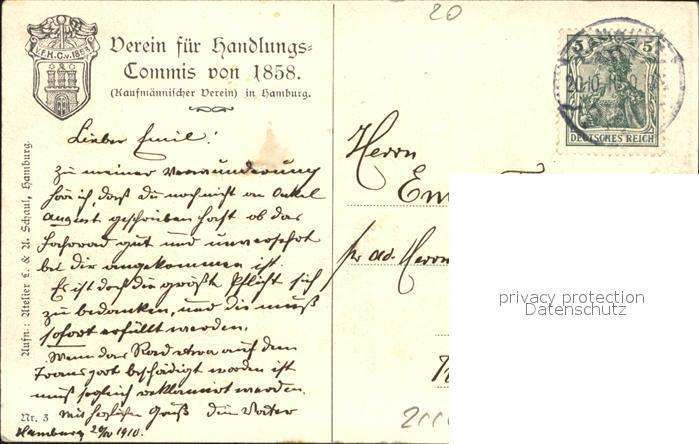 V.f.H.C.v.1858
Verein für Handlungs=
Commis von 1858.
(Kaufmännischer Verein) in Hamburg.
Lieber Emil!
Zu meiner Verwunderung
höre ich, daß du noch nicht an Onkel
August geschrieben hast ob das
Fahrrad gut und unversehrt
bei dir angekommen ist.
Es ist doch die größte Pflicht sich
zu bedanken, und die muß
sofort erfüllt werden.
Wenn das Rad etwa auf dem
Transport beschädigt worden ist
muß sogleich reklamiert werden.
Mit herzlichem Gruß Dein Vater
Hamburg 1910.
Nr. 3
Aufn.: Atelier L. & A. Schaul, Hamburg.
20
5
DEUTSCHES REICH
20.10.
Herrn
Em
pr ad. Herrn
privacy protection
Datenschutz